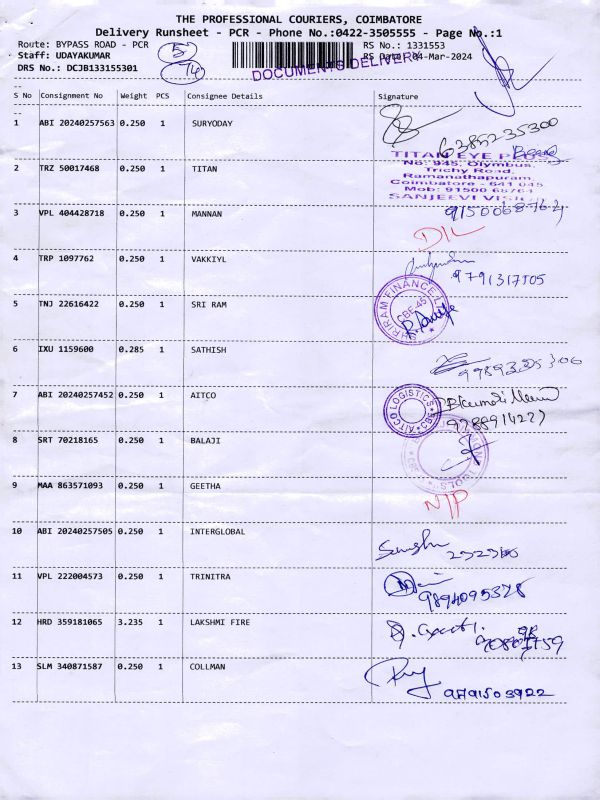 THE PROFESSIONAL COURIERS, COIMBATORE
Delivery Runsheet - PCR - Phone No.:0422-3505555 - Page No.:1
Route: BYPASS ROAD - PCR
RS No.: 1331553
Staff: UDAYAKUMAR
DOCUMENTS DELIVERY
RS Date: 04-Mar-2024
DRS No.: DCJB133155301
S No Consignment No Weight PCS Consignee Details Signature
1 ABI 20240257563 0.250 1 SURYODAY
2 TRZ 50017468 0.250 1 TITAN
TITAN EYE PLUS
No: 945, Olymbus,
Trichy Road,
Ramanathapuram,
Coimbatore - 641 045
Mob: 91500 68764
SANJEEVI VISION
3 VPL 404428718 0.250 1 MANNAN
9150068764
D/L
4 TRP 1097762 0.250 1 VAKKIYL
9791317505
5 TNJ 22616422 0.250 1 SRI RAM
SHRIRAM FINANCE
CBE-45
6 IXU 1159600 0.285 1 SATHISH
7 ABI 20240257452 0.250 1 AITCO
AITCO LOGISTICS
8 SRT 70218165 0.250 1 BALAJI
9 MAA 863571093 0.250 1 GEETHA
N/P
10 ABI 20240257505 0.250 1 INTERGLOBAL
11 VPL 222004573 0.250 1 TRINITRA
9894095328
12 HRD 359181065 3.235 1 LAKSHMI FIRE
13 SLM 340871587 0.250 1 COLLMAN
9791503922